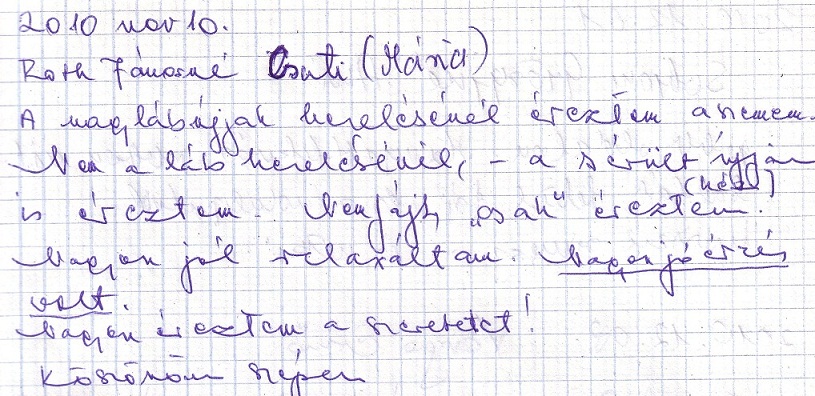 2010 nov 10.
Roth Jánosné Csuti (Mária)
A nagylábujjak kezelésénél éreztem a szemem.
Nem a láb kezelésénél, - a sérült ujján
(kéz)
is éreztem. Nem fájt, „csak" éreztem.
Nagyon jól relaxáltam. Nagyon jó érzés
volt.
Nagyon éreztem a szeretetet!
Köszönöm szépen